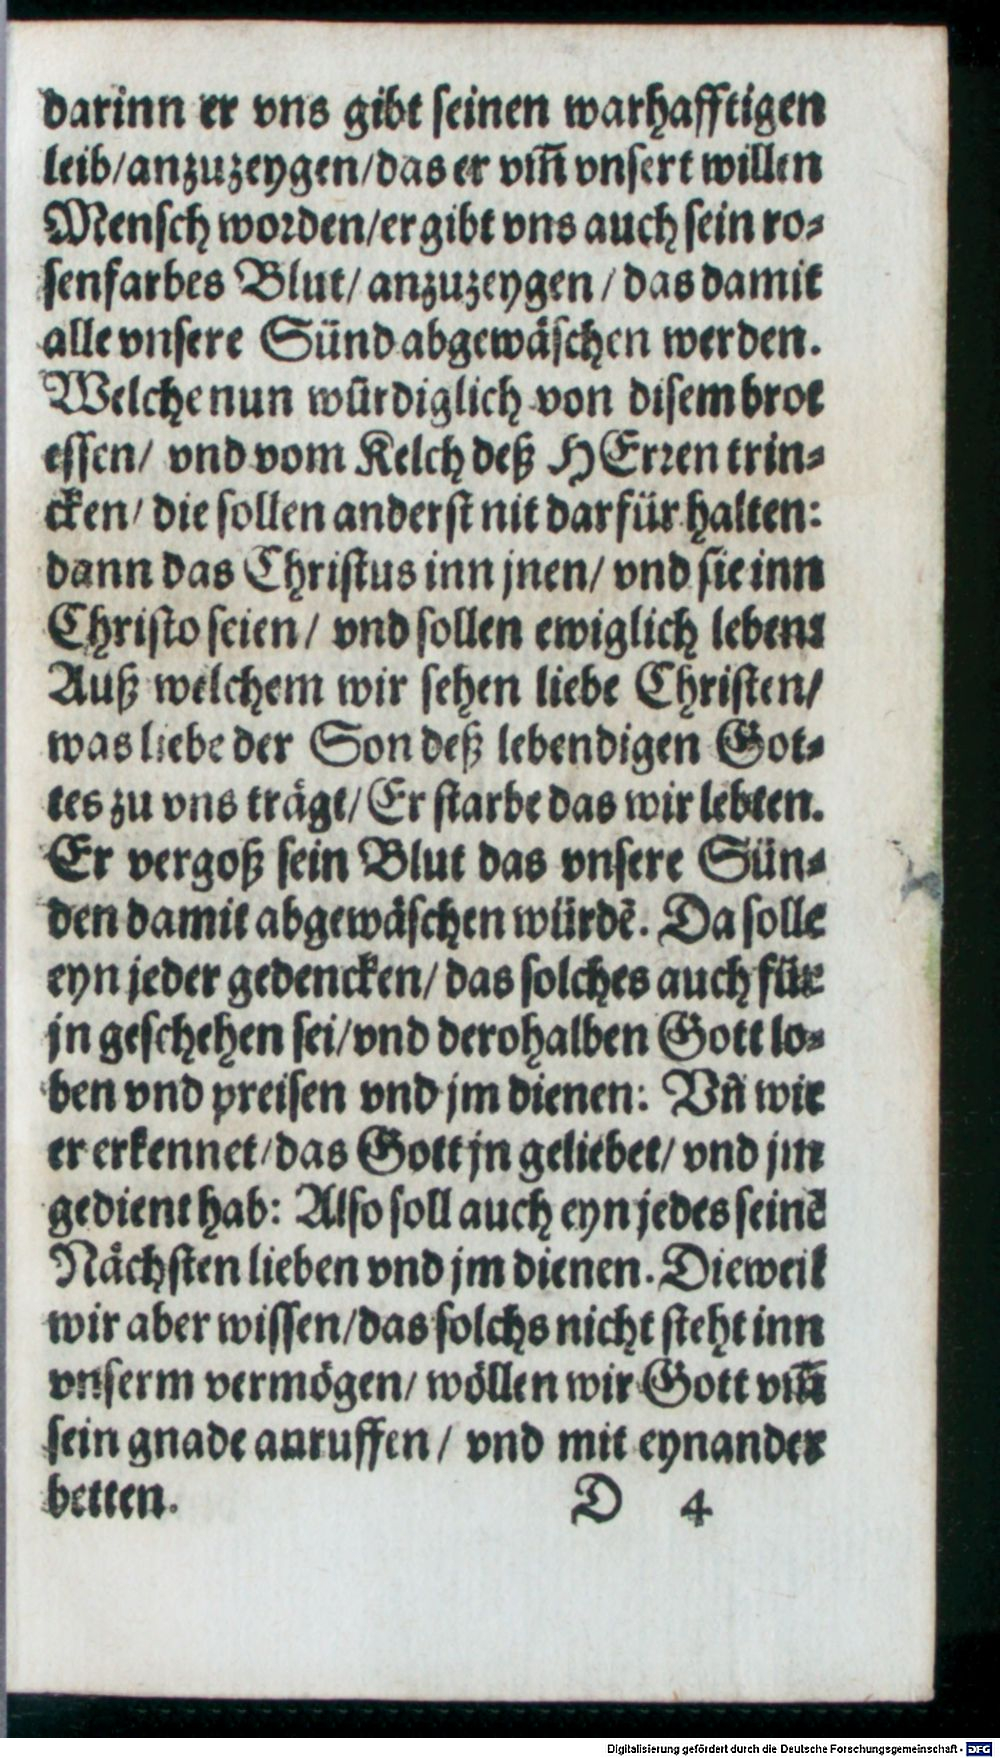 darinn er vns gibt seinen warhafftigen
leib/anzuzeygen/das er vm̃ vnsert willen
Mensch worden/er gibt vns auch sein ro-
senfarbes Blut/ anzuzeygen/ das damit
alle vnsere Sünd abgewäschen werden.
Welche nun würdiglich von disem brot
essen/ vnd vom Kelch deß HErren trin-
cken/ die sollen anderst nit darfür halten:
dann das Christus inn jnen/ vnd sie inn
Christo seien/ vnd sollen ewiglich leben:
Auß welchem wir sehen liebe Christen/
was liebe der Son deß lebendigen Got-
tes zu vns trägt/ Er starbe das wir lebten.
Er vergoß sein Blut das vnsere Sün-
den damit abgewäschen würdẽ. Da solle
eyn jeder gedencken/ das solches auch für
jn geschehen sei/vnd derohalben Gott lo-
ben vnd preisen vnd jm dienen: Vñ wie
er erkennet/das Gott jn geliebet/ vnd jm
gedient hab: Also soll auch eyn jedes seinẽ
Nächsten lieben vnd jm dienen. Dieweil
wir aber wissen/das solchs nicht steht inn
vnserm vermögen/ wöllen wir Gott vm̃
sein gnade anruffen/ vnd mit eynander
betten. D 4
Digitalisierung gefördert durch die Deutsche Forschungsgemeinschaft - DFG